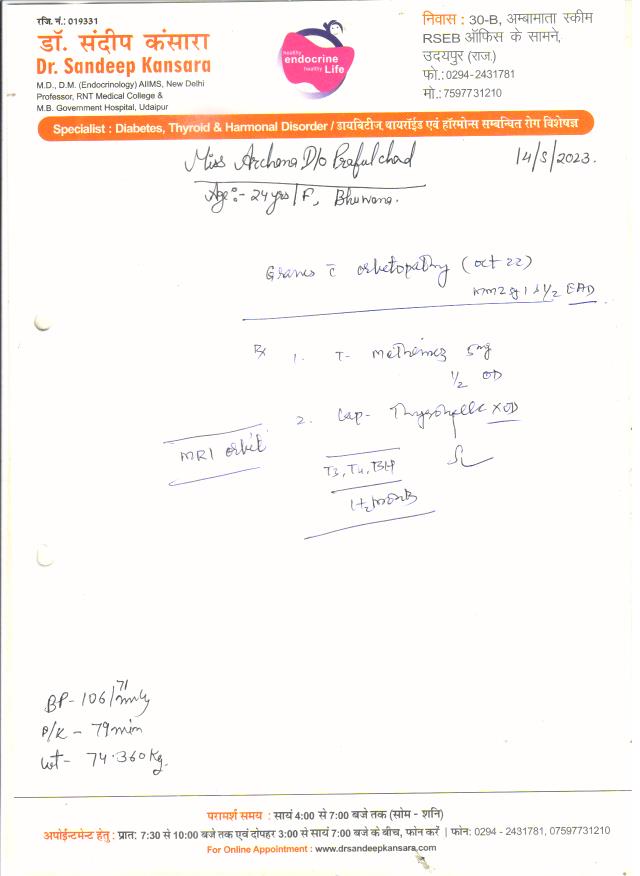 रजि. नं.: 019331
डॉ. संदीप कंसारा
Dr. Sandeep Kansara
M.D., D.M. (Endocrinology) AIIMS, New Delhi
Professor, RNT Medical College &
M.B. Government Hospital, Udaipur
healthy
endocrine
healthy Life
निवास : 30-B, अम्बामाता स्कीम
RSEB ऑफिस के सामने,
उदयपुर (राज.)
फो.:0294-2431781
मो.:7597731210
Specialist : Diabetes, Thyroid & Harmonal Disorder / डायबिटीज, थायरॉईड एवं हॉरमोन्स सम्बन्धित रोग विशेषज्ञ
Miss Archana D/o Prafulchad 14/5/2023.
Age:- 24 yrs / F, Bhuwana.
Graves c̄ orbitopathy (oct 22)
1/2 EAD
Rx 1. T- Methimez 5mg
1/2 OD
2. Cap- X OD
MRI orbit
T3, T4, TSH
BP- 106/71 mmHg
P/R - 79 min
wt- 74.360 Kg.
परामर्श समय : सायं 4:00 से 7:00 बजे तक (सोम - शनि)
अपोईन्टमेन्ट हेतु : प्रात: 7:30 से 10:00 बजे तक एवं दोपहर 3:00 से सायं 7:00 बजे के बीच, फोन करें | फोन: 0294 - 2431781, 07597731210
For Online Appointment : www.drsandeepkansara.com